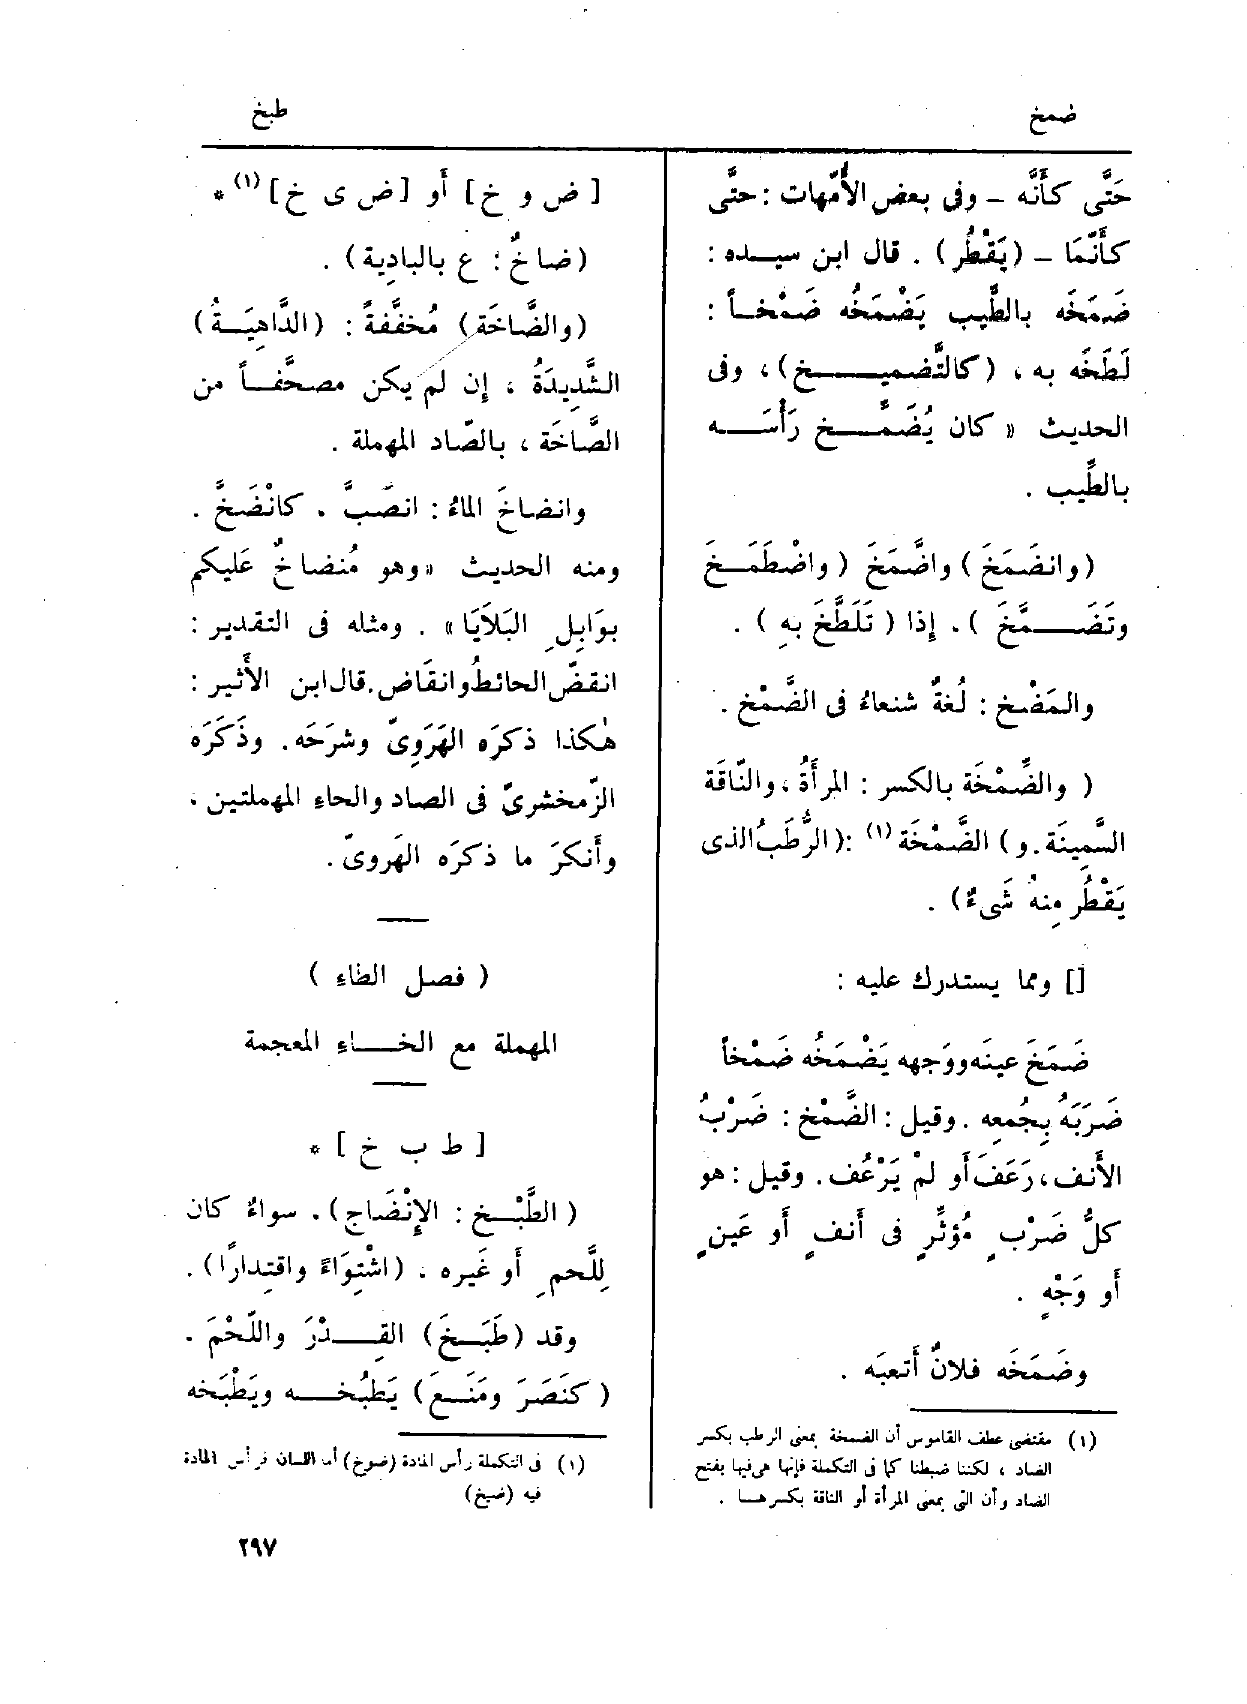 ضمخ
طبخ
حَتَّى كأَنَّه – وفى بعض الأُمّهات : حتَّى
كأَنّمَا – (يَقْطُر) . قال ابن سيـده :
ضَمَخَه بالطِّيب يَضْمَخُه ضَمْخـاً :
لَطَخَه به ، (كالتَّضميـخ) ، وفى
الحديث « كان يُضَمِّـخ رَأْسَـه
بالطِّيب .
(وانضَمَخَ) واضَّمَخَ (واضْطَمَـخَ
وتَضَـمَّخَ ) . إِذا ( تَلَطَّخَ بهِ ) .
والمَضْخ : لُغةٌ شنعاءُ فى الضَّمْخ .
( والضِّمْخَة بالكسر : المرأَةُ ، والنّاقَة
السَّمِينَة . و ) الضَّمْخَة (١) : ( الرُّطَبُ الذى
يَقْطُر مِنهُ شَىءٌ) .
[] ومما يستدرك عليه :
ضَمَخَ عينَه ووَجهه يَضْمَخُه ضَمْخاً
ضَرَبَهُ بِجُمعِه . وقيل : الضَّمْخ : ضَرْبُ
الأَنف ، رَعَفَ أَو لمْ يَرْعُف . وقيل : هو
كلُّ ضَرْبٍ مُؤثِّرٍ فى أَنفٍ أَو عَينٍ
أَو وَجْهٍ .
وضَمَخَه فلانٌ أَتعبَه .
(١) مقتضى عطف القاموس أن الضمخة بمعنى الرطب بكسر
الضاد ، لكننا ضبطنا كما فى التكملة فإنها هى فيها بفتح
الضاد وأن التى بمعنى المرأة أو الناقة بكسرهـا .
[ ض و خ ] أَو [ ض ى خ ] (١) *
(ضاخٌ : ع بالبادِية) .
(والضَّاخَة) مُخفَّفةً : (الدَّاهِيَـةُ)
الشَّدِيدَةُ ، إِن لم يكن مصحَّفـاً من
الصَّاخَة ، بالصّاد المهملة .
وانضاخَ الماءُ : انصَبَّ ، كانْضَخَّ .
ومنه الحديث « وهو مُنضاخٌ عَليكم
بوَابِلِ البَلَايَا » . ومثله فى التقدير :
انقضّ الحائطُ وانقَاض . قال ابن الأَثير :
هٰكذا ذكرَه الهَرَوِىّ وشرَحَه . وذَكَرَه
الزّمخشرىّ فى الصاد والحاءِ المهملتين ،
وأَنكرَ ما ذكرَه الهَروىّ .
( فصل الطاءِ )
المهملة مع الخـاءِ المعجمة
[ ط ب خ ] *
( الطَّبْـخ : الإِنْضَاج) . سواءٌ كان
لِلَّحمِ أَو غَيره . (اشْتِوَاءً واقتِدارًا) .
وقد (طَبَـخَ) القِـدْرَ واللّحْمَ .
( كنَصَرَ ومَنَـعَ ) يَطبُخـه ويَطْبَخه
(١) فى التكملة رأس المادة (ضوخ) أما اللسان فرأس المادة
فيه (ضيخ)
٢٩٧